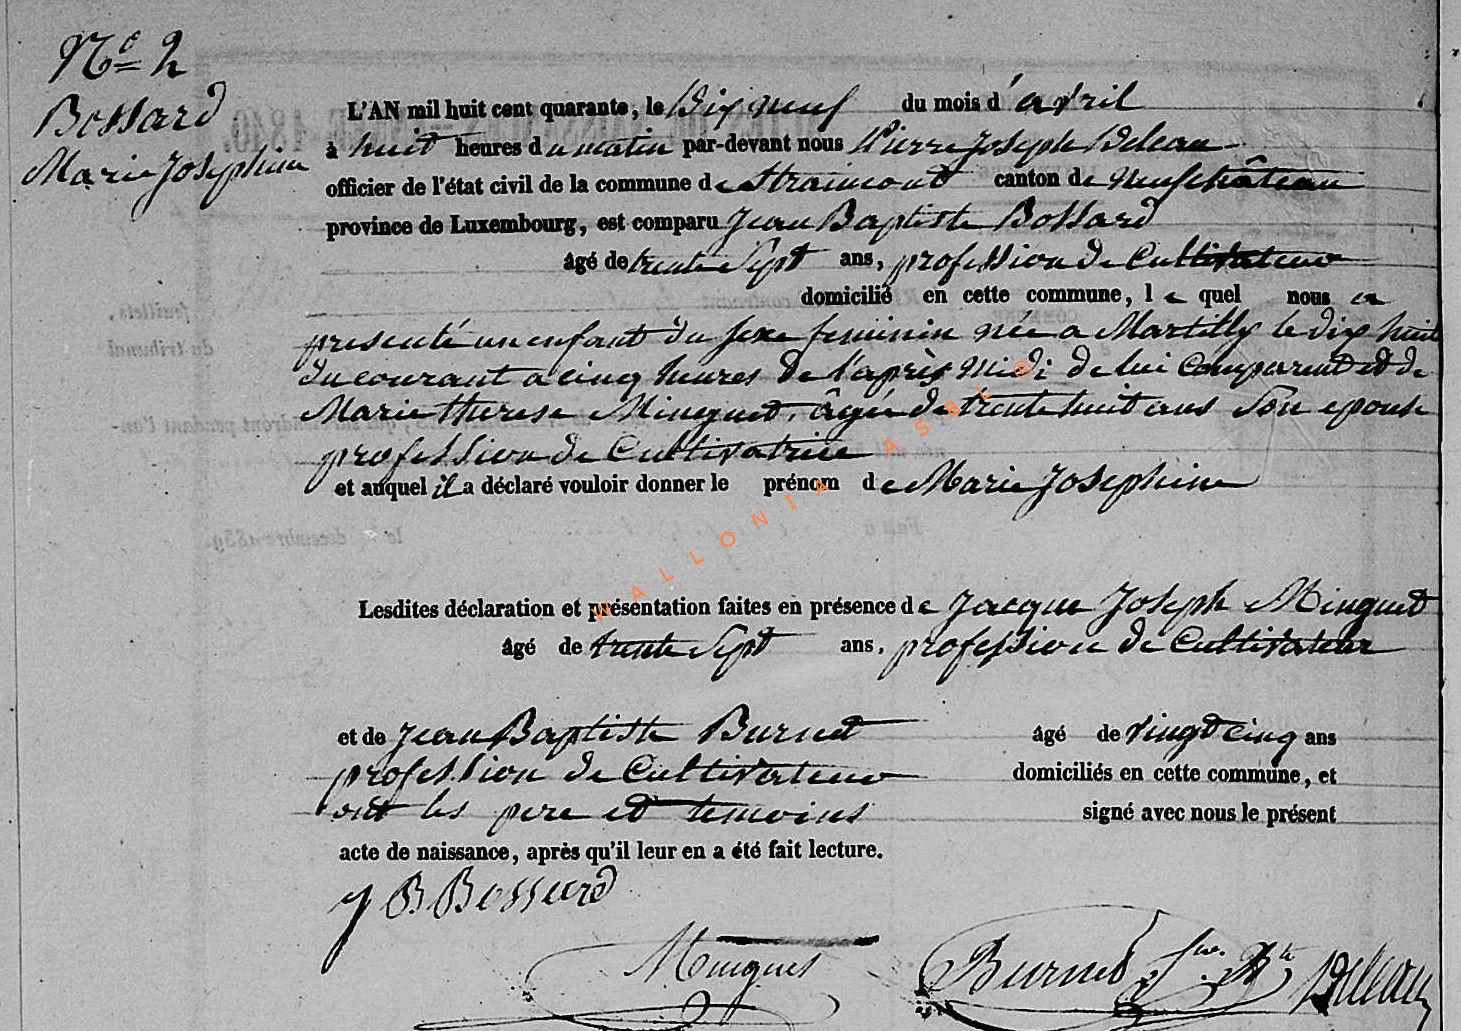 N.º 2
Bossard
Marie Josephine
L'AN mil huit cent quarante, le Dix neuf du mois d'avril
à huit heures du matin par-devant nous Pierre Joseph Deleau
officier de l'état civil de la commune de Straimont canton de Neufchâteau
province de Luxembourg, est comparu Jean Baptiste Bossard
âgé de trente Sept ans, profession de Cultivateur
domicilié en cette commune, le quel nous a
presenté un enfant du sexe feminin née a Martilly le dix huit
du courant a cinq heures de l'après midi de lui Comparant et de
Marie therese Minguet, âgée de trente huit ans son epouse
profession de Cultivatrice
et auquel il a déclaré vouloir donner le prénom de Marie Josephine
Lesdites déclaration et présentation faites en présence de Jacque Joseph Minguet
âgé de trente Sept ans, profession de Cultivateur
et de Jean Baptiste Burnet âgé de vingt cinq ans
profession de Cultivateur domiciliés en cette commune, et
ont les pere et temoins signé avec nous le présent
acte de naissance, après qu'il leur en a été fait lecture.
J B Bossard
Minguet
Burnet Jn. Bte Deleau
WALLONIA ASBL ©